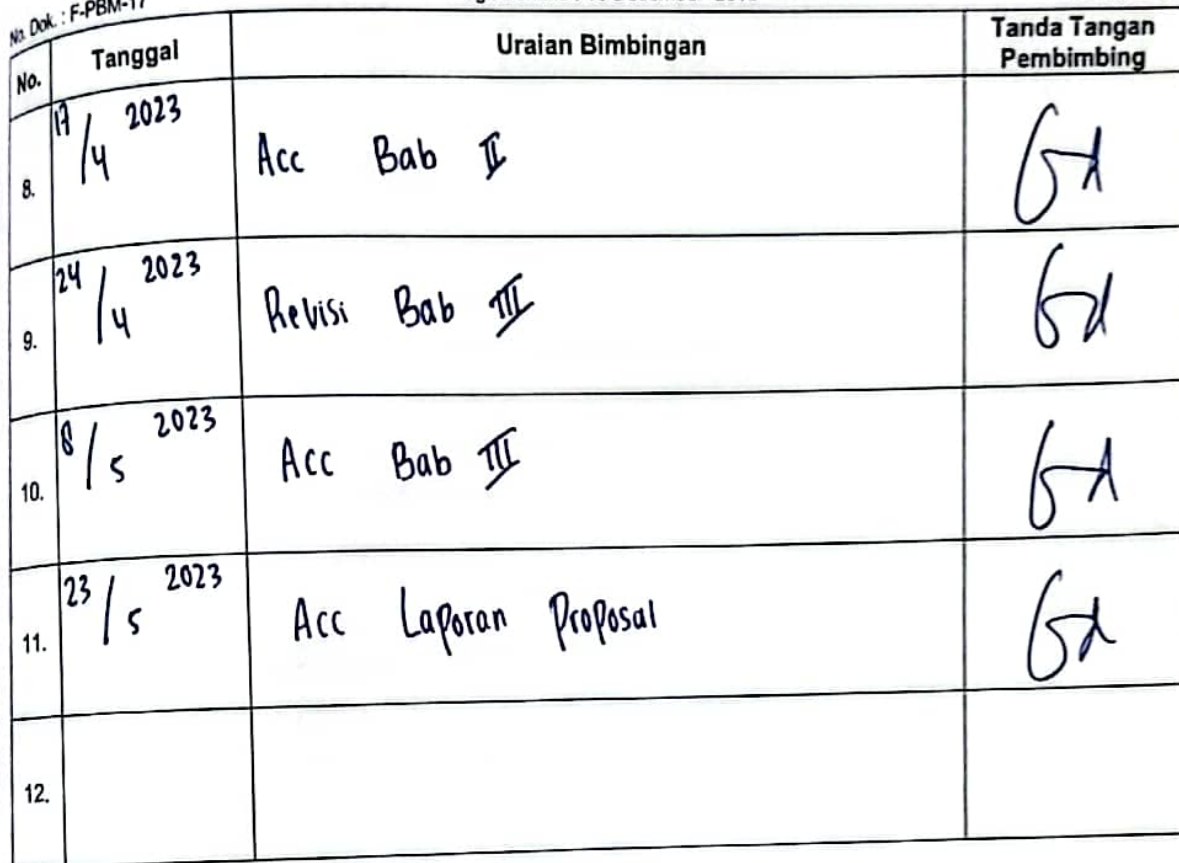 No. Dok. : F-PBM-17
No. Tanggal Uraian Bimbingan Tanda Tangan Pembimbing
8. 17/4 2023 Acc Bab II
9. 24/4 2023 Revisi Bab III
10. 8/5 2023 Acc Bab III
11. 23/5 2023 Acc Laporan Proposal
12.